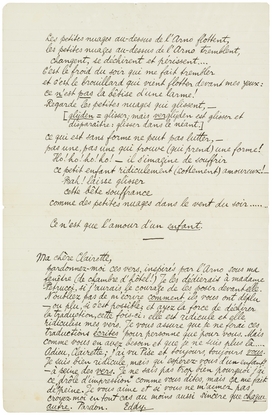 Les petites nuages au-dessus de l'Arno flottent,
les petites nuages au-dessus de l'Arno tremblent,
changent, se déchirent et périssent....
C'est le froid du soir qui me fait trembler
et c'est le brouillard qui vient flotter devant mes yeux:
ce n'est pas la bêtise d'une larme!
Regarde les petites nuages qui glissent,—
[glyden = glisser, mais verglyden est glisser et
disparaître: glisser dans le néant.]
ce qui est sans forme ne peut pas lutter,—
pas une, pas une qui trouve (qui prend) une forme!
Ho! ho! ho! ho! — il s'imagine de souffrir
ce petit enfant ridiculement (sottement) amoureux!—
Bah! laisse glisser
cette bête souffrance
comme des petites nuages dans le vent du soir.....
Ce n'est que l'amour d'un enfant.
Ma chère Clairette,
pardonnez-moi ces vers, inspirés par l'Arno sous ma
fenêtre (de chambre d'hôtel!) Je les dédierais à madame
si j'aurais le courage de les poser devant elle.
N'oubliez pas de m'écrire comment ils vous ont déplu
— ou plu, si c'est possible, et ayez la force de déchirer
la traduction, cette fois-ci: elle est ridicule et elle
ridiculise mes vers. Je vous assure que je ne ferai ces
traductions écrites pour personne que pour vous. Mais
comme vous en avez besoin et que je ne suis plus là....
Adieu, Clairette; j'ai vu Pise et toujours toujours vous.
Je suis bien ridicule, mais vous d'un enfant
à peine des vers. Je ne sais pas trop bien pourquoi j'ai
ce drôle d'impression comme vous dites, mais ça me fait
de peine. Je vous aime et si vous ne m'aimez pas,
croyez-moi en tout cas au moins aussi sincère que chaque
autre. Pardon. Eddy